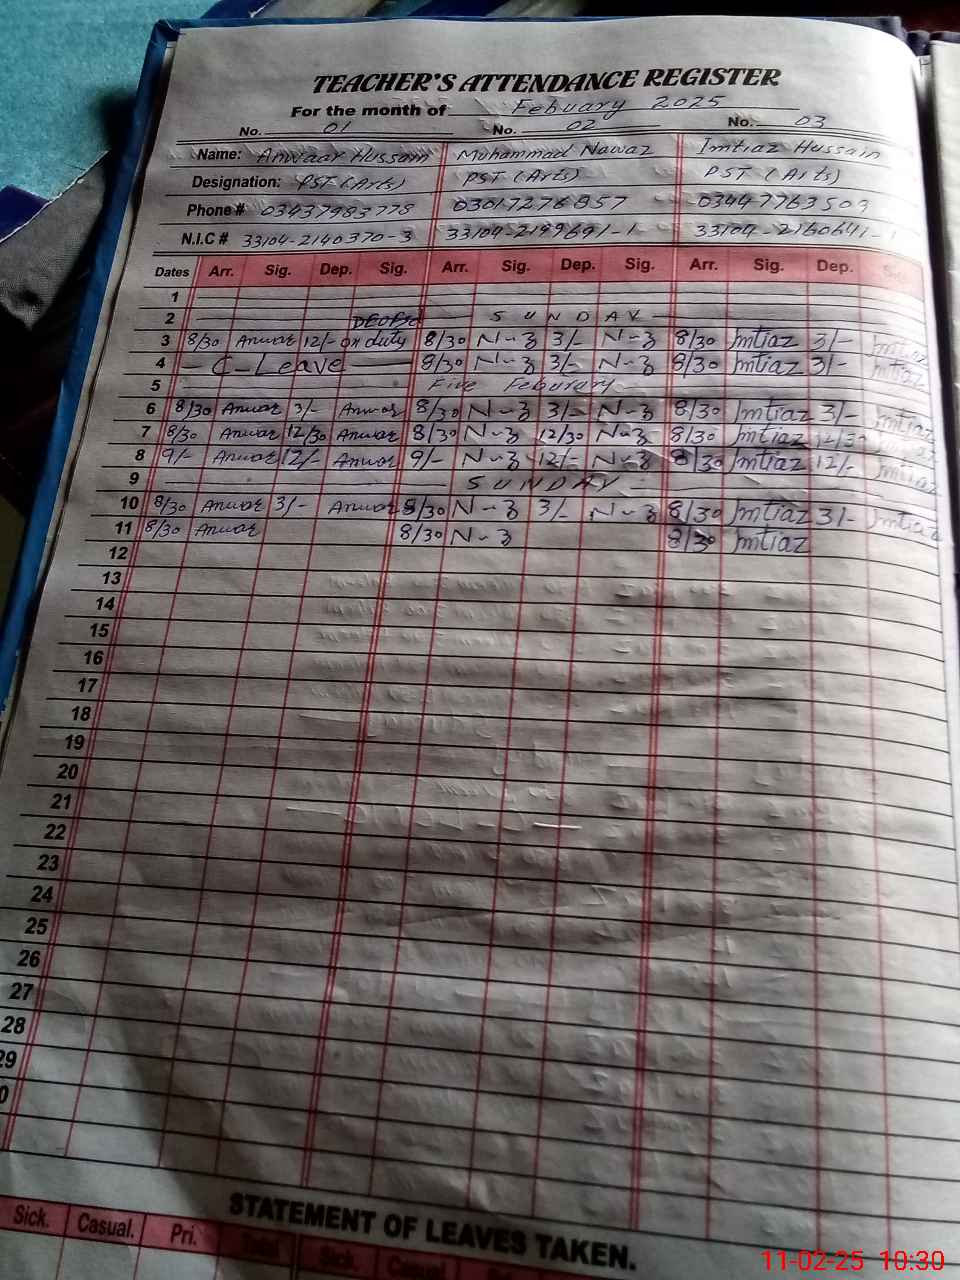 TEACHER'S ATTENDANCE REGISTER
For the month of Febuary 2025
No. 01 No. 02 No. 03
Name: Anwaar Hussain Muhammad Nawaz Imtiaz Hussain
Designation: PST (Arts) PST (Arts) PST (Arts)
Phone # 03437983778 03017276857 03447763509
N.I.C # 33104-2140370-3 33104-2199691-1 33104-2160641-1
Dates Arr. Sig. Dep. Sig. Arr. Sig. Dep. Sig. Arr. Sig. Dep. Sig.
1
2 SUNDAY
3 8/30 Anwar 12/- on duty 8/30 N-z 3/- N-z 8/30 Imtiaz 3/- Imtiaz
4 C-Leave 8/30 N-z 3/- N-z 8/30 Imtiaz 3/- Imtiaz
5 Five Feburary
6 8/30 Anwar 3/- Anwar 8/30 N-z 3/- N-z 8/30 Imtiaz 3/- Imtiaz
7 8/30 Anwar 12/30 Anwar 8/30 N-z 12/30 N-z 8/30 Imtiaz 12/30
8 9/- Anwar 12/- Anwar 9/- N-z 12/- N-z 8/30 Imtiaz 12/- Imtiaz
9 SUNDAY
10 8/30 Anwar 3/- Anwar 8/30 N-z 3/- N-z 8/30 Imtiaz 3/- Imtiaz
11 8/30 Anwar 8/30 N-z 8/30 Imtiaz
12
13
14
15
16
17
18
19
20
21
22
23
24
25
26
27
28
29
0
STATEMENT OF LEAVES TAKEN.
Sick. Casual. Pri. Total Sick. Casual
11-02-25 10:30